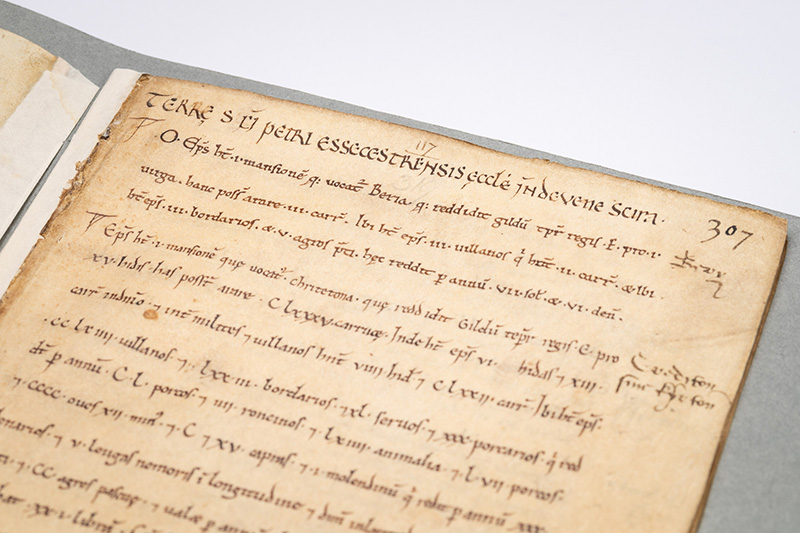 TERRĘ S C̄I PETRI ESSECESTRĒNSIS ęcclę̄ IN DEVENE Scira.
117
307
O. Ep̄s ht̄ .i. mansionē q̨ vocat̄ Beria q̨ reddidit gildū t̄p̄r regis E. pro .i.
virga. hanc poss̄ arare .iii. carr̄. Ibi ht̄ ep̄s .iii. villanos q̄ hn̄t .ii. carr̄. & ibi
ht̄ ep̄s. .iii. bordarios. & .v. agros p̄ti. hęc reddit p annū .vii. sol̄. & .vi. den̄.
Ep̄s ht̄ .i. mansionē que vocat̄ Chritetona. quę reddidit Gildū tēpr̄ regis E. pro
xv. hidis. has poss̄t arare. C lxxxv. carrucę. Inde ht̄ ep̄s vi. hidas ⁊ xiii.
carr̄ indn̄io ⁊ int̄ milites ⁊ villanos hn̄t viiii hid̄ ⁊ C lxxii. carr̄. Ibi ht̄ ep̄s.
.CC lx iiii. villanos ⁊ lxx iii. bordarios. ⁊ xl. servos ⁊ xxx porcarios. q̄ red
p annū. C. L. porcos ⁊ iiii roncinos. ⁊ lx iiii. animalia ⁊ L vii porcos.
⁊ cccc. oues xii min̄ ⁊ C ⁊ xv. capras ⁊ .i. molendinū q̄ redit̄ p annū xxx.
⁊ v. leugas nemoris ī longitudine ⁊ dim̄
⁊ CC agros pascuę ⁊ valæ p
xx v libras
Crediton
sive Kyrton